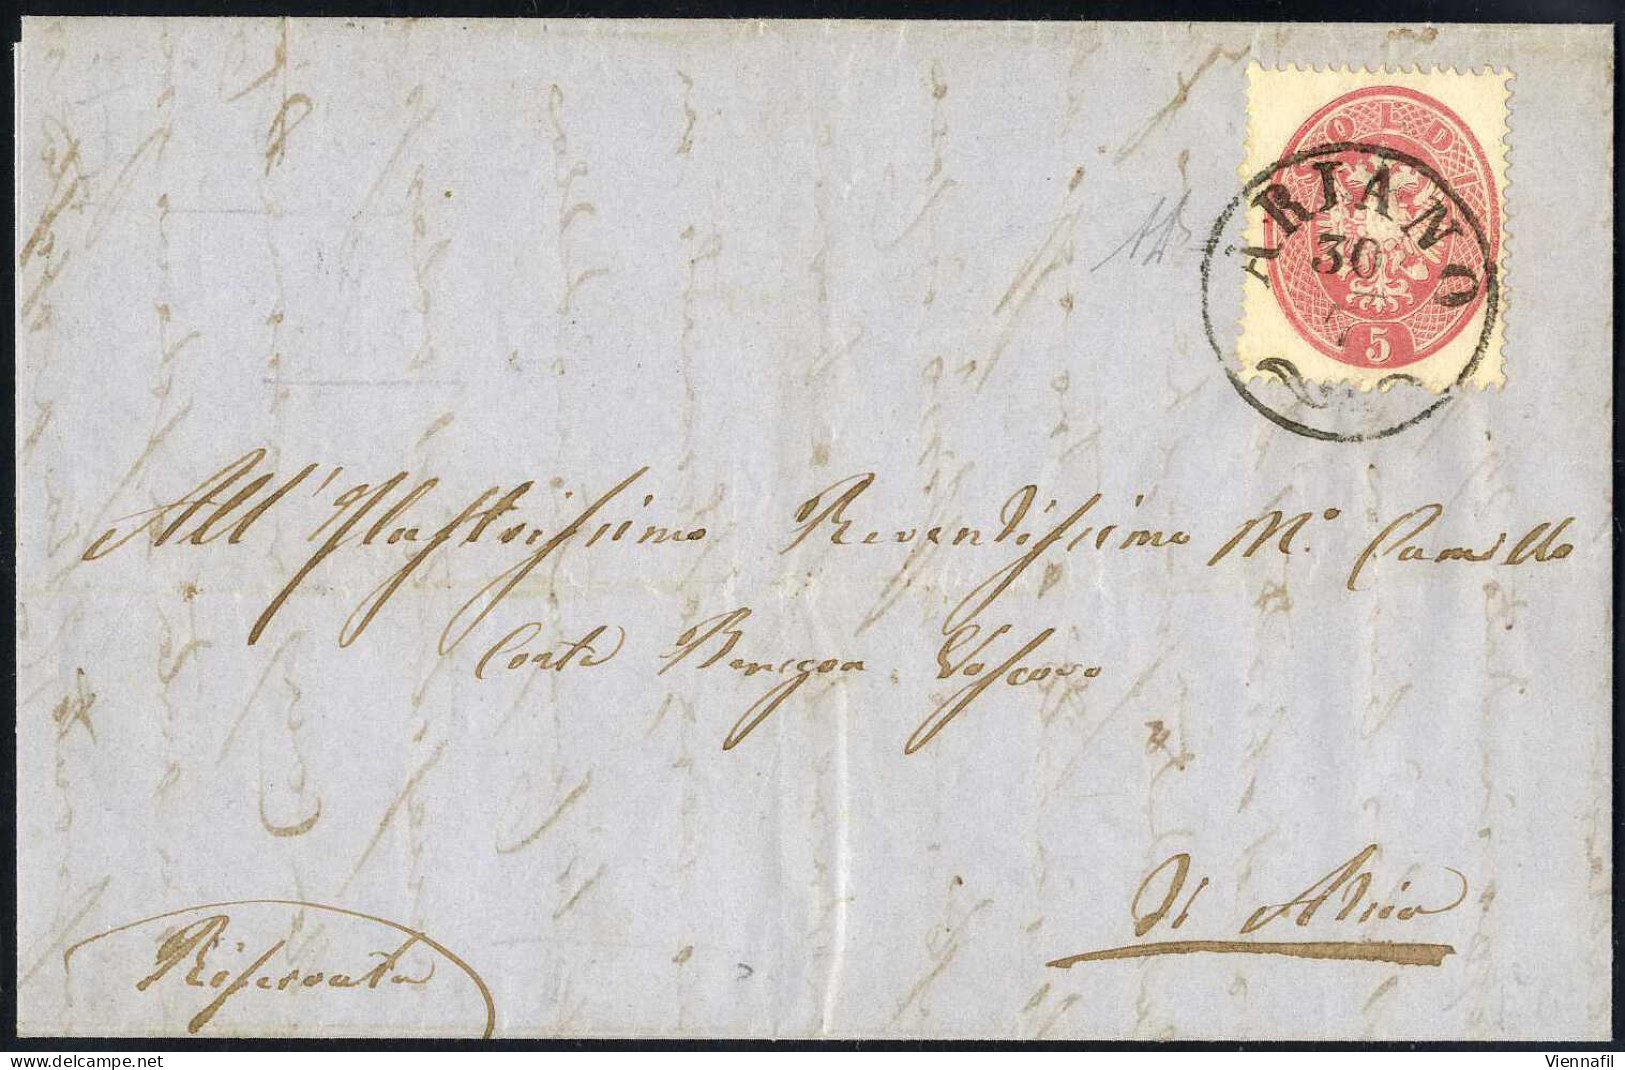 SOLDI
ARIANO
30
7
5
All' Illustrissimo Reverendissimo M.r Camillo
Conte Benzon Vescovo
di Adria
Riservata
Viennafil